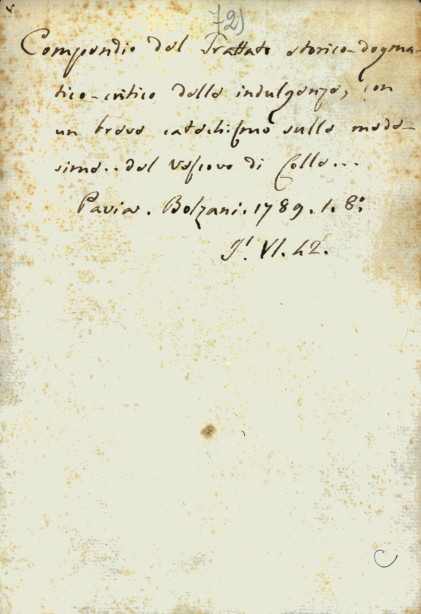 72)
Compendio del Trattato storico-dogma-
tico-critico delle indulgenze, con
un breve catechismo sulle mede-
sime.. del Vescovo di Colle...
Pavia. Bolzani. 1789. 1. 8º.
VI. 42.